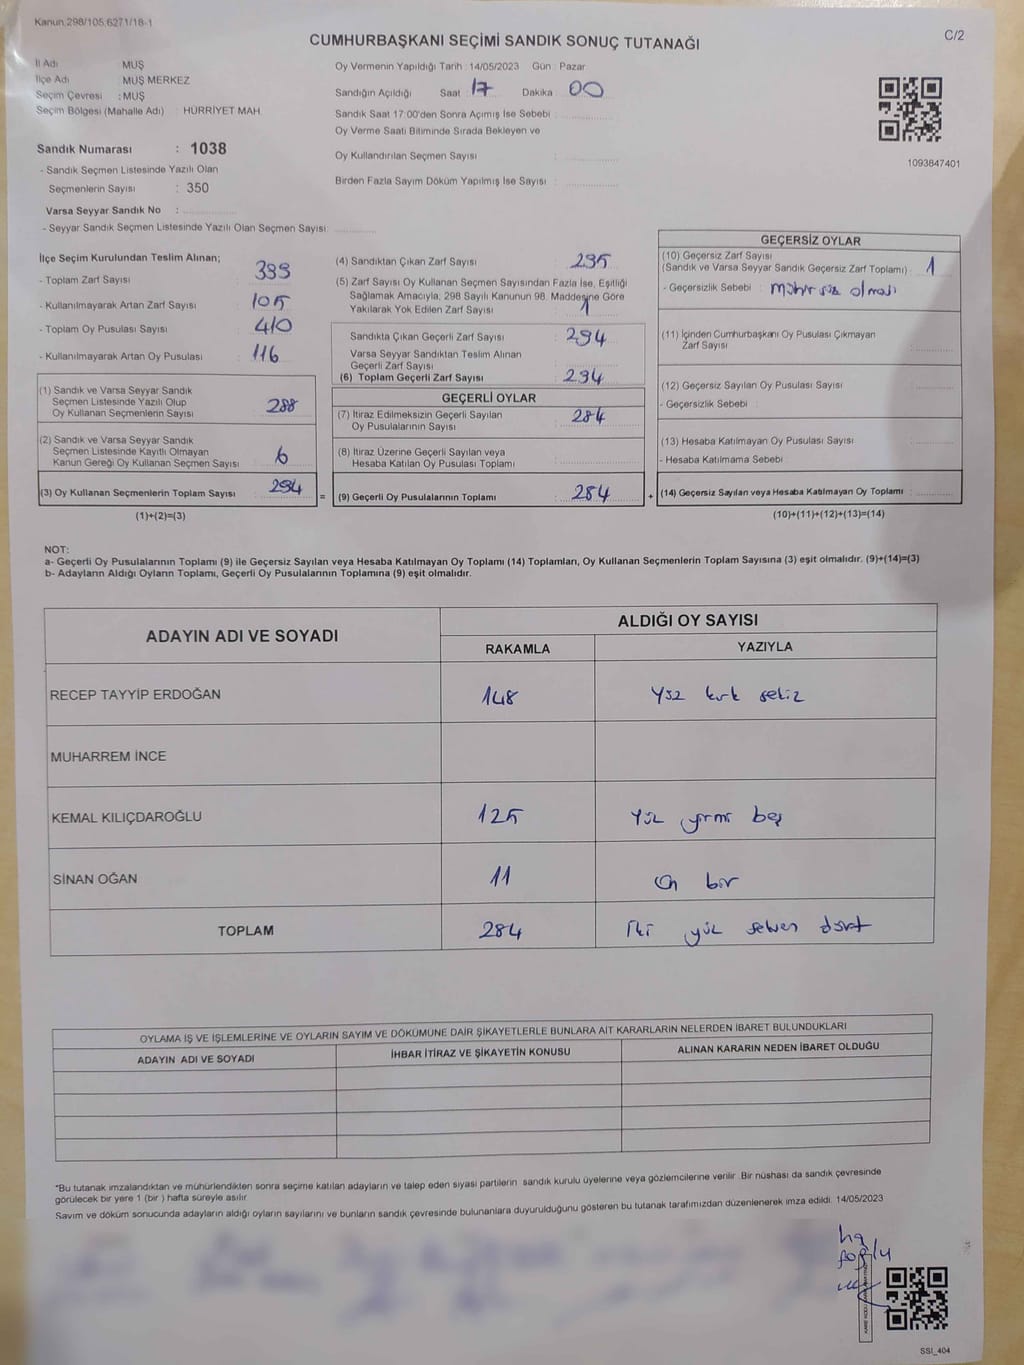 Kanun.298/105,6271/18-1
C/2
CUMHURBAŞKANI SEÇİMİ SANDIK SONUÇ TUTANAĞI
İl Adı : MUŞ
İlçe Adı : MUŞ MERKEZ
Seçim Çevresi : MUŞ
Seçim Bölgesi (Mahalle Adı) : HÜRRİYET MAH.
Sandık Numarası : 1038
- Sandık Seçmen Listesinde Yazılı Olan
Seçmenlerin Sayısı : 350
Varsa Seyyar Sandık No :
- Seyyar Sandık Seçmen Listesinde Yazılı Olan Seçmen Sayısı:
Oy Vermenin Yapıldığı Tarih : 14/05/2023 Gün : Pazar
Sandığın Açıldığı Saat : 17 Dakika : 00
Sandık Saat 17:00'den Sonra Açımış İse Sebebi :
Oy Verme Saati Bitiminde Sırada Bekleyen ve
Oy Kullandırılan Seçmen Sayısı :
Birden Fazla Sayım Döküm Yapılmış İse Sayısı :
1093847401
İlçe Seçim Kurulundan Teslim Alınan;
- Toplam Zarf Sayısı : 399
- Kullanılmayarak Artan Zarf Sayısı : 105
- Toplam Oy Pusulası Sayısı : 410
- Kullanılmayarak Artan Oy Pusulası : 116
(1) Sandık ve Varsa Seyyar Sandık
Seçmen Listesinde Yazılı Olup
Oy Kullanan Seçmenlerin Sayısı : 288
(2) Sandık ve Varsa Seyyar Sandık
Seçmen Listesinde Kayıtlı Olmayan
Kanun Gereği Oy Kullanan Seçmen Sayısı : 6
(3) Oy Kullanan Seçmenlerin Toplam Sayısı : 294
(1)+(2)=(3)
(4) Sandıktan Çıkan Zarf Sayısı : 295
(5) Zarf Sayısı Oy Kullanan Seçmen Sayısından Fazla İse, Eşitliği
Sağlamak Amacıyla, 298 Sayılı Kanunun 98. Maddesine Göre
Yakılarak Yok Edilen Zarf Sayısı : 1
Sandıkta Çıkan Geçerli Zarf Sayısı : 294
Varsa Seyyar Sandıktan Teslim Alınan
Geçerli Zarf Sayısı :
(6) Toplam Geçerli Zarf Sayısı : 294
GEÇERLİ OYLAR
(7) İtiraz Edilmeksizin Geçerli Sayılan
Oy Pusulalarının Sayısı : 284
(8) İtiraz Üzerine Geçerli Sayılan veya
Hesaba Katılan Oy Pusulası Toplamı :
= (9) Geçerli Oy Pusulalarının Toplamı : 284
GEÇERSİZ OYLAR
(10) Geçersiz Zarf Sayısı
(Sandık ve Varsa Seyyar Sandık Geçersiz Zarf Toplamı) : 1
- Geçersizlik Sebebi : mühür süz olması
(11) İçinden Cumhurbaşkanı Oy Pusulası Çıkmayan
Zarf Sayısı :
(12) Geçersiz Sayılan Oy Pusulası Sayısı :
- Geçersizlik Sebebi :
(13) Hesaba Katılmayan Oy Pusulası Sayısı :
- Hesaba Katılmama Sebebi :
+ (14) Geçersiz Sayılan veya Hesaba Katılmayan Oy Toplamı :
(10)+(11)+(12)+(13)=(14)
NOT:
a- Geçerli Oy Pusulalarının Toplamı (9) ile Geçersiz Sayılan veya Hesaba Katılmayan Oy Toplamı (14) Toplamları, Oy Kullanan Seçmenlerin Toplam Sayısına (3) eşit olmalıdır. (9)+(14)=(3)
b- Adayların Aldığı Oyların Toplamı, Geçerli Oy Pusulalarının Toplamına (9) eşit olmalıdır.
ADAYIN ADI VE SOYADI
ALDIĞI OY SAYISI
RAKAMLA YAZIYLA
RECEP TAYYİP ERDOĞAN 148 Yüz kırk sekiz
MUHARREM İNCE
KEMAL KILIÇDAROĞLU 125 Yüz yirmi beş
SİNAN OĞAN 11 On bir
TOPLAM 284 İki yüz seksen dört
OYLAMA İŞ VE İŞLEMLERİNE VE OYLARIN SAYIM VE DÖKÜMÜNE DAİR ŞİKAYETLERLE BUNLARA AİT KARARLARIN NELERDEN İBARET BULUNDUKLARI
ADAYIN ADI VE SOYADI İHBAR İTİRAZ VE ŞİKAYETİN KONUSU ALINAN KARARIN NEDEN İBARET OLDUĞU
"Bu tutanak imzalandıktan ve mühürlendikten sonra seçime katılan adayların ve talep eden siyasi partilerin sandık kurulu üyelerine veya gözlemcilerine verilir. Bir nüshası da sandık çevresinde
görülecek bir yere 1 (bir ) hafta süreyle asılır.
Sayım ve döküm sonucunda adayların aldığı oyların sayılarını ve bunların sandık çevresinde bulunanlara duyurulduğunu gösteren bu tutanak tarafımızdan düzenlenerek imza edildi. 14/05/2023
SSI_404